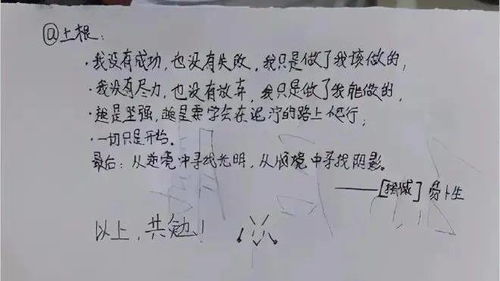 @土根:
·我没有成功,也没有失败,我只是做了我该做的;
·我没有尽力,也没有放弃,我只是做了我能做的,
·越是坚强,越是要学会在泥泞的路上爬行;
·一切只是开始。
最后:从逆境中寻找光明,从顺境中寻找阴影。
——[挪威] 易卜生
以上,共勉!